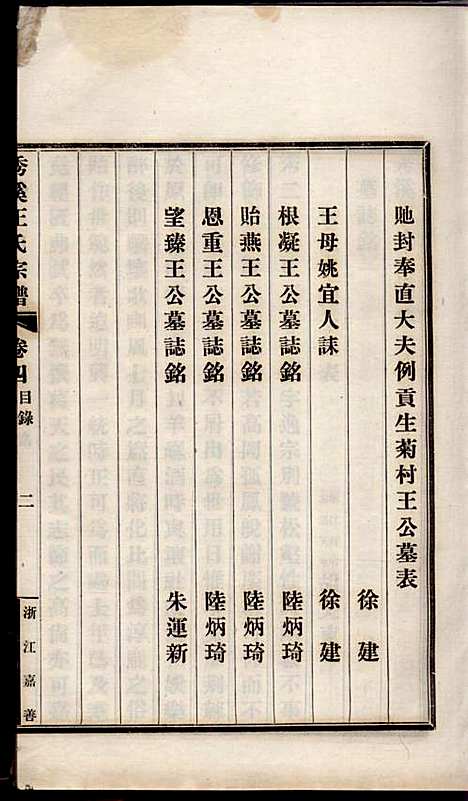 貤封奉直大夫例貢生菊村王公墓表
徐建
王母姚宜人誄
徐建
根凝王公墓誌銘
陸炳琦
貽燕王公墓誌銘
陸炳琦
恩重王公墓誌銘
陸炳琦
望臻王公墓誌銘
朱運新
秀溪王氏宗譜
卷四
目錄
二
浙江嘉善